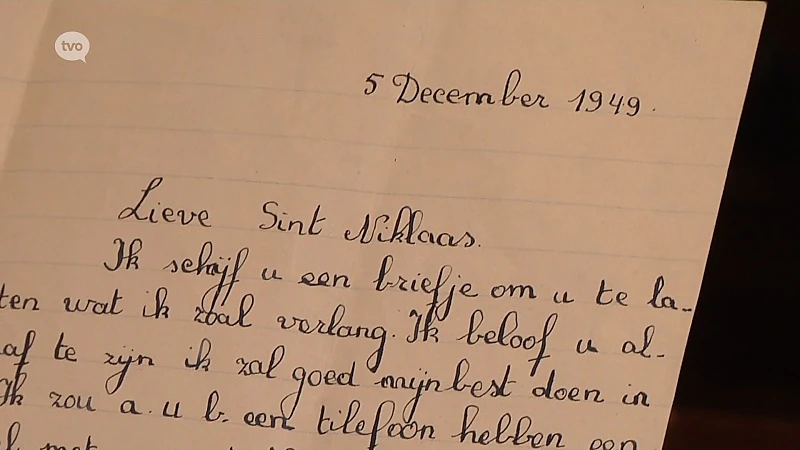 tvo
5 December 1949.
Lieve Sint Niklaas.
Ik schijf u een briefje om u te la-
ten wat ik zoal verlang. Ik beloof u al-
af te zijn ik zal goed mijn best doen in
Ik zou a.u b. een tilefoon hebben een
met